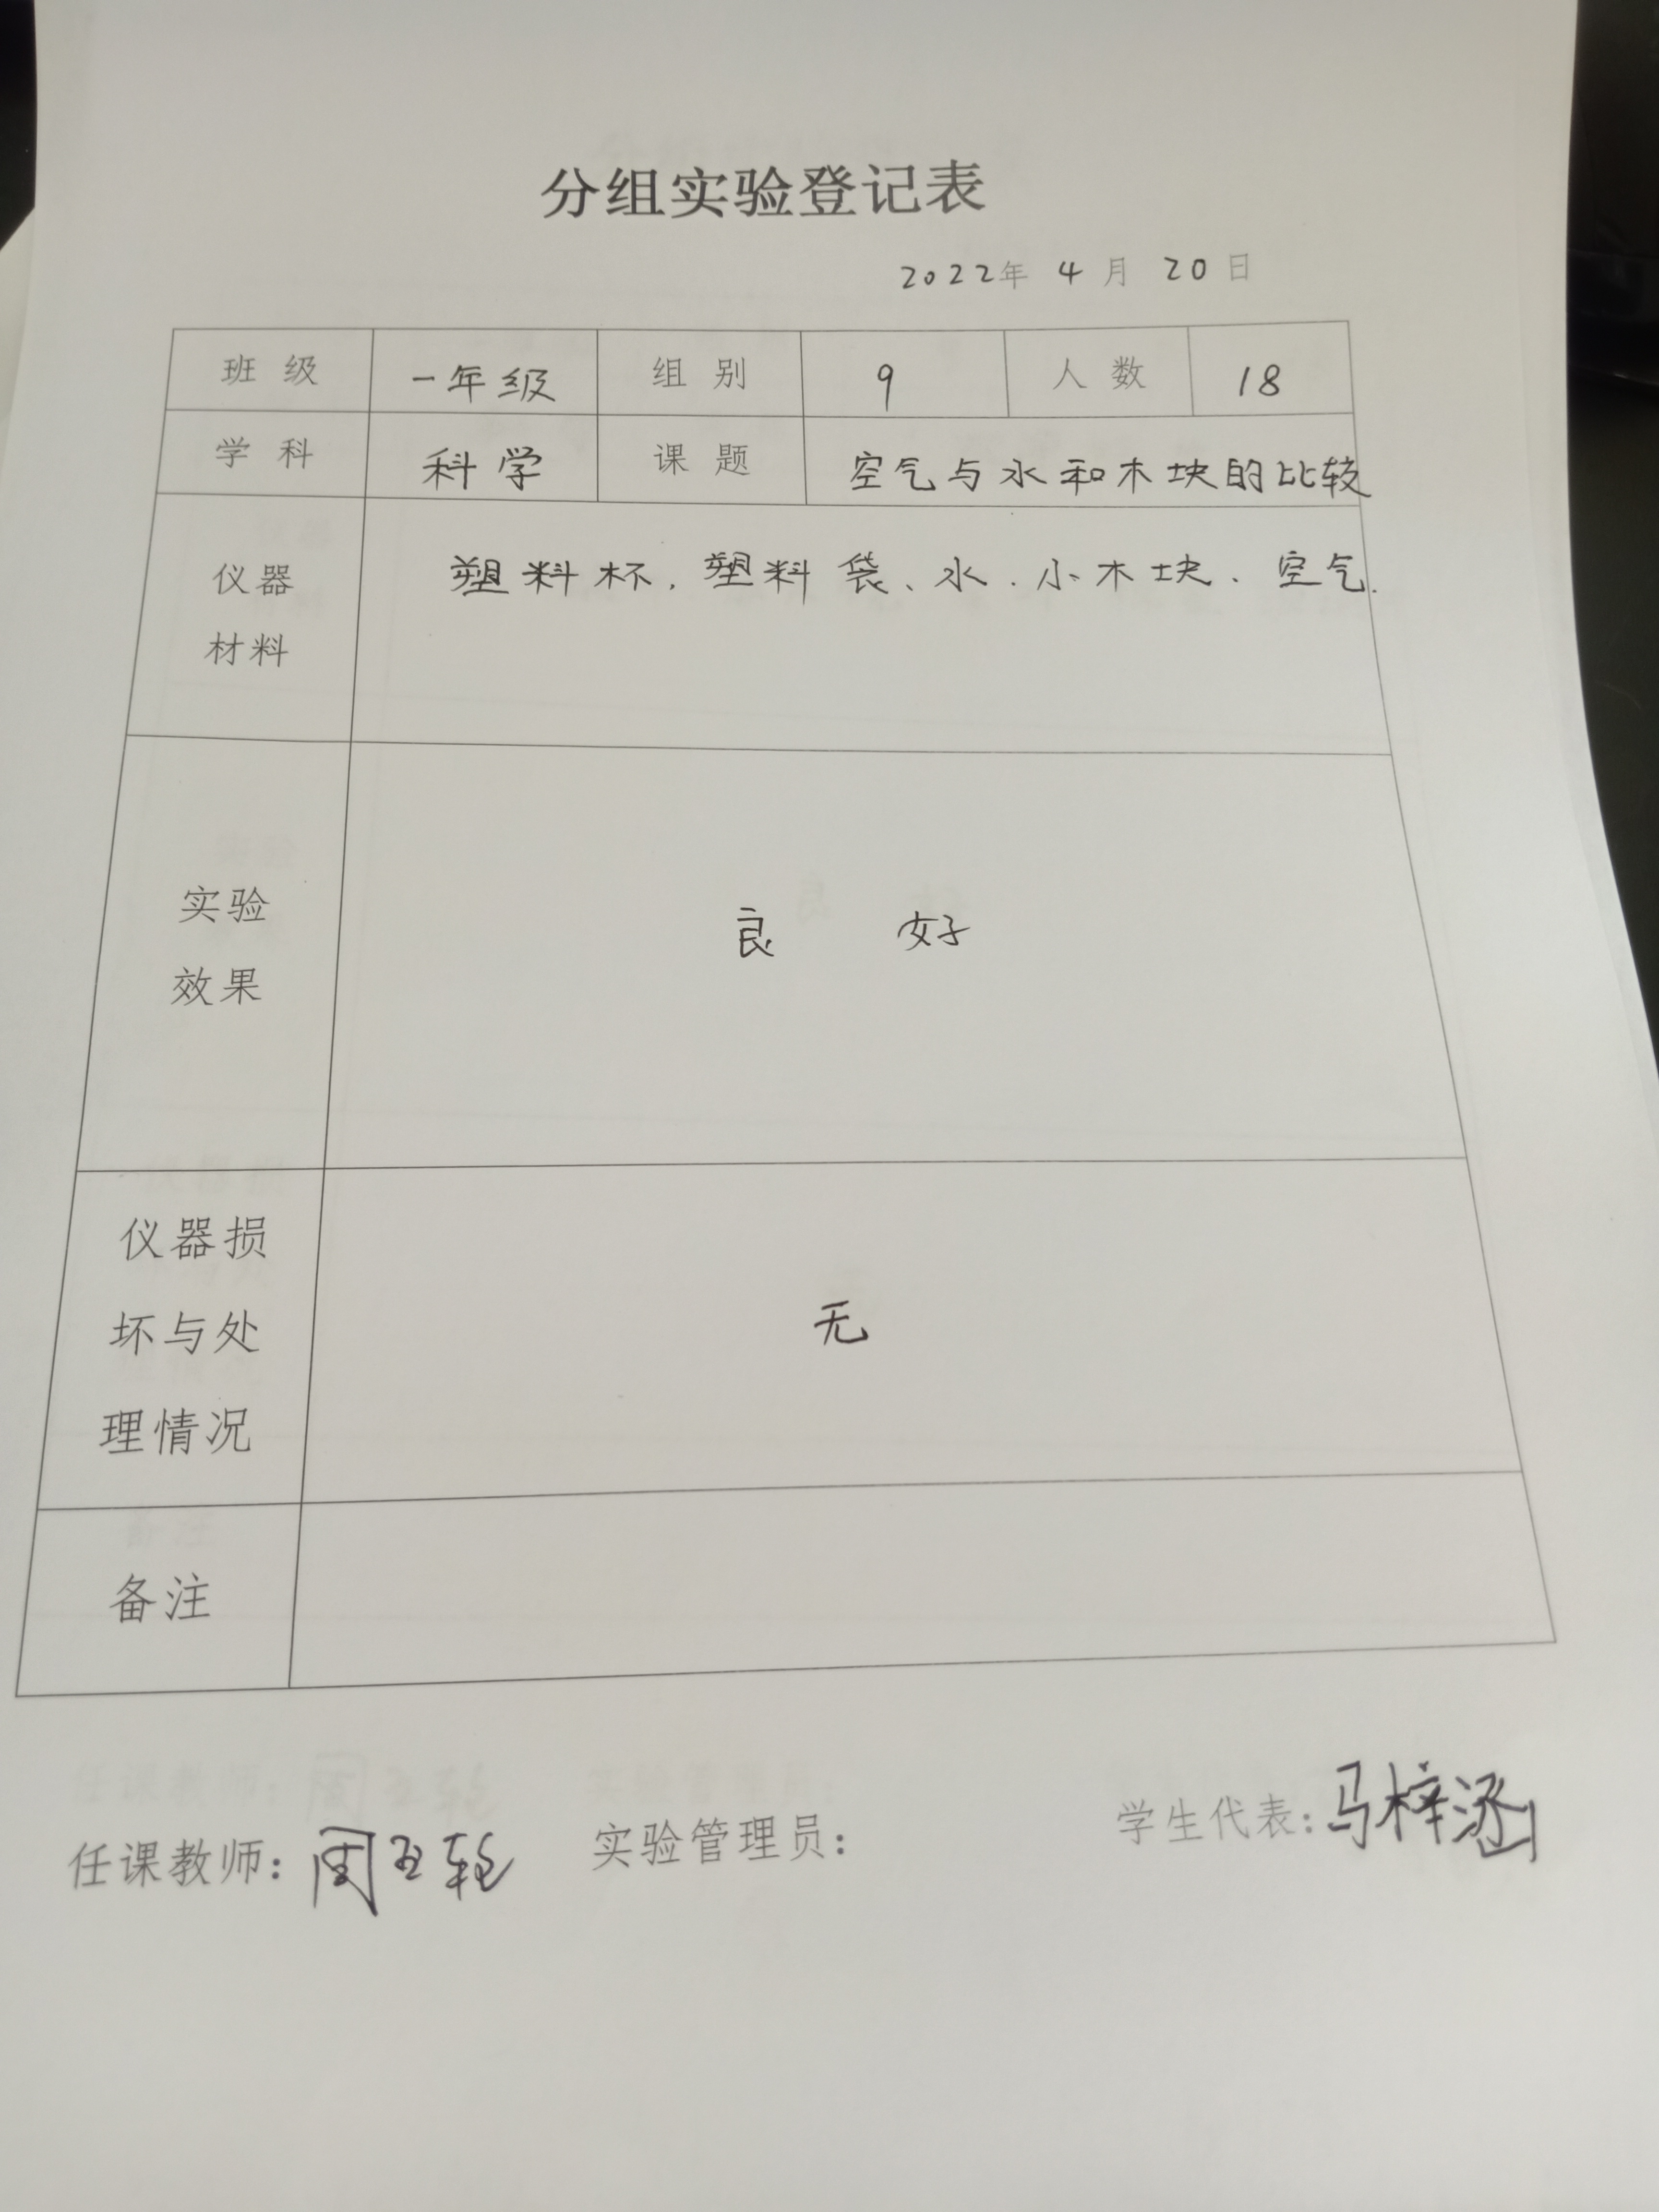 分组实验登记表
2022年 4 月 20 日
班 级 一年级 组 别 9 人 数 18
学 科 科学 课 题 空气与水和木块的比较
仪器
材料
塑料杯、塑料袋、水、小木块、空气.
实验
效果
良 好
仪器损
坏与处
理情况
无
备注
任课教师：周玉轮 实验管理员： 学生代表：马梓涵